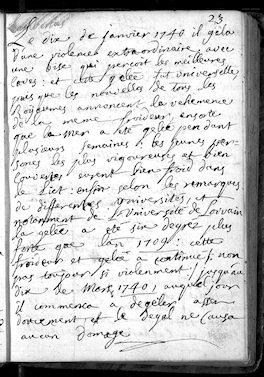 23
Le dix de janvier 1740 il gela
d'une violence extraordinaire avec
une bise qui perçoit les meilleures
caves: et cette gelée fut universelle
puis que les nouvelles de tous les
Royaumes annoncent la vehemence
de la meme froideur, ensorte
que la mer a eté gelée pendant
plusieurs semaines; les jeunes per-
sones les plus vigoureuses et bien
couvertes eurent bien froid dans
le Liet: enfin selon les remarques
de differentes universités et
notamment de L'Université de Lovain
la gelée a eté six degrez plus
forte que lan 1709: cette
froideur et gelée a continué, non
pas toujour si violemment jusqu'au
dix de Mars 1740, auquel jour
il commença a degeler asses
doucement et le degel ne causa
aucun domage